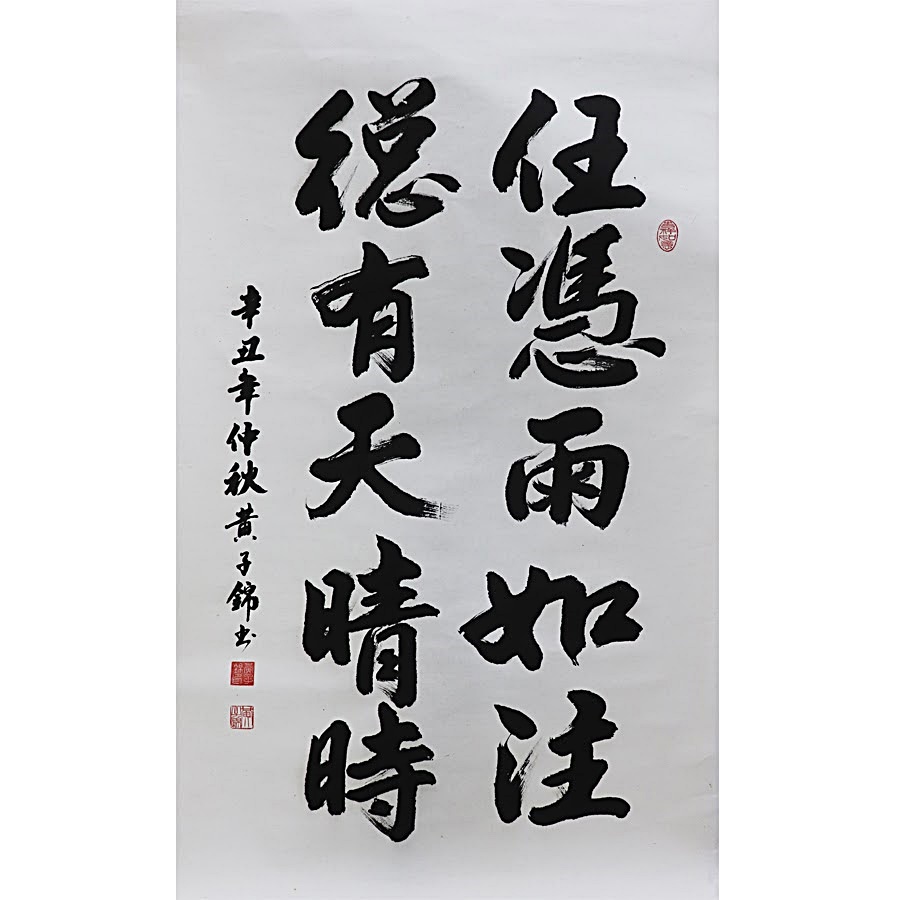 任憑雨如注
緫有天晴時
辛丑年仲秋黃子錦书